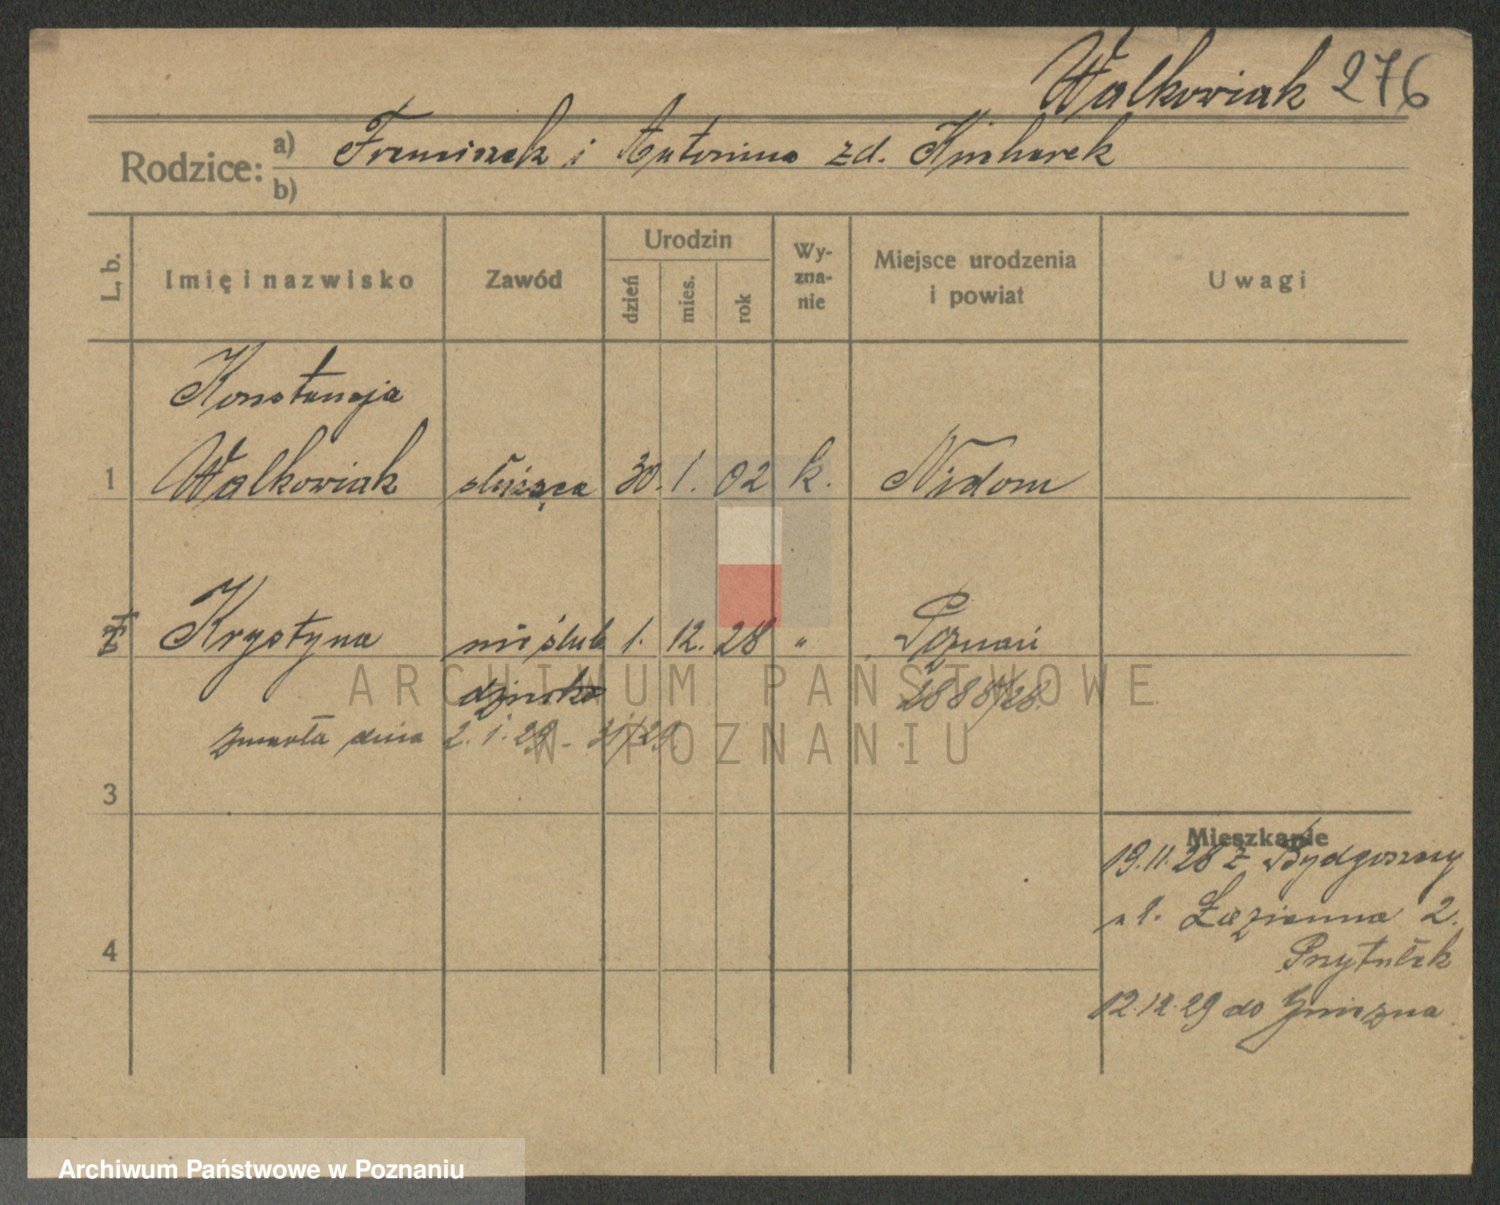 Walkowiak 276
Rodzice: a) Franciszek i Antonina zd. Kucharek
b)
L. b. Imię i nazwisko Zawód Urodzin dzień mies. rok Wy-zna-nie Miejsce urodzenia i powiat Uwagi
Konstancja
1 Walkowiak służąca 30. 1. 02 k. Nidom
2 Krystyna nieślub 1. 12. 28 " Poznań
dziecko 2888/28
zmarła dnia 2.1.29 - 31/29
3
Mieszkanie
19.11.28 z Bydgoszczy
ul. Łazienna 2.
Przytułek
4
12.12.29 do Gniezna
ARCHIWUM PAŃSTWOWE
W POZNANIU
Archiwum Państwowe w Poznaniu